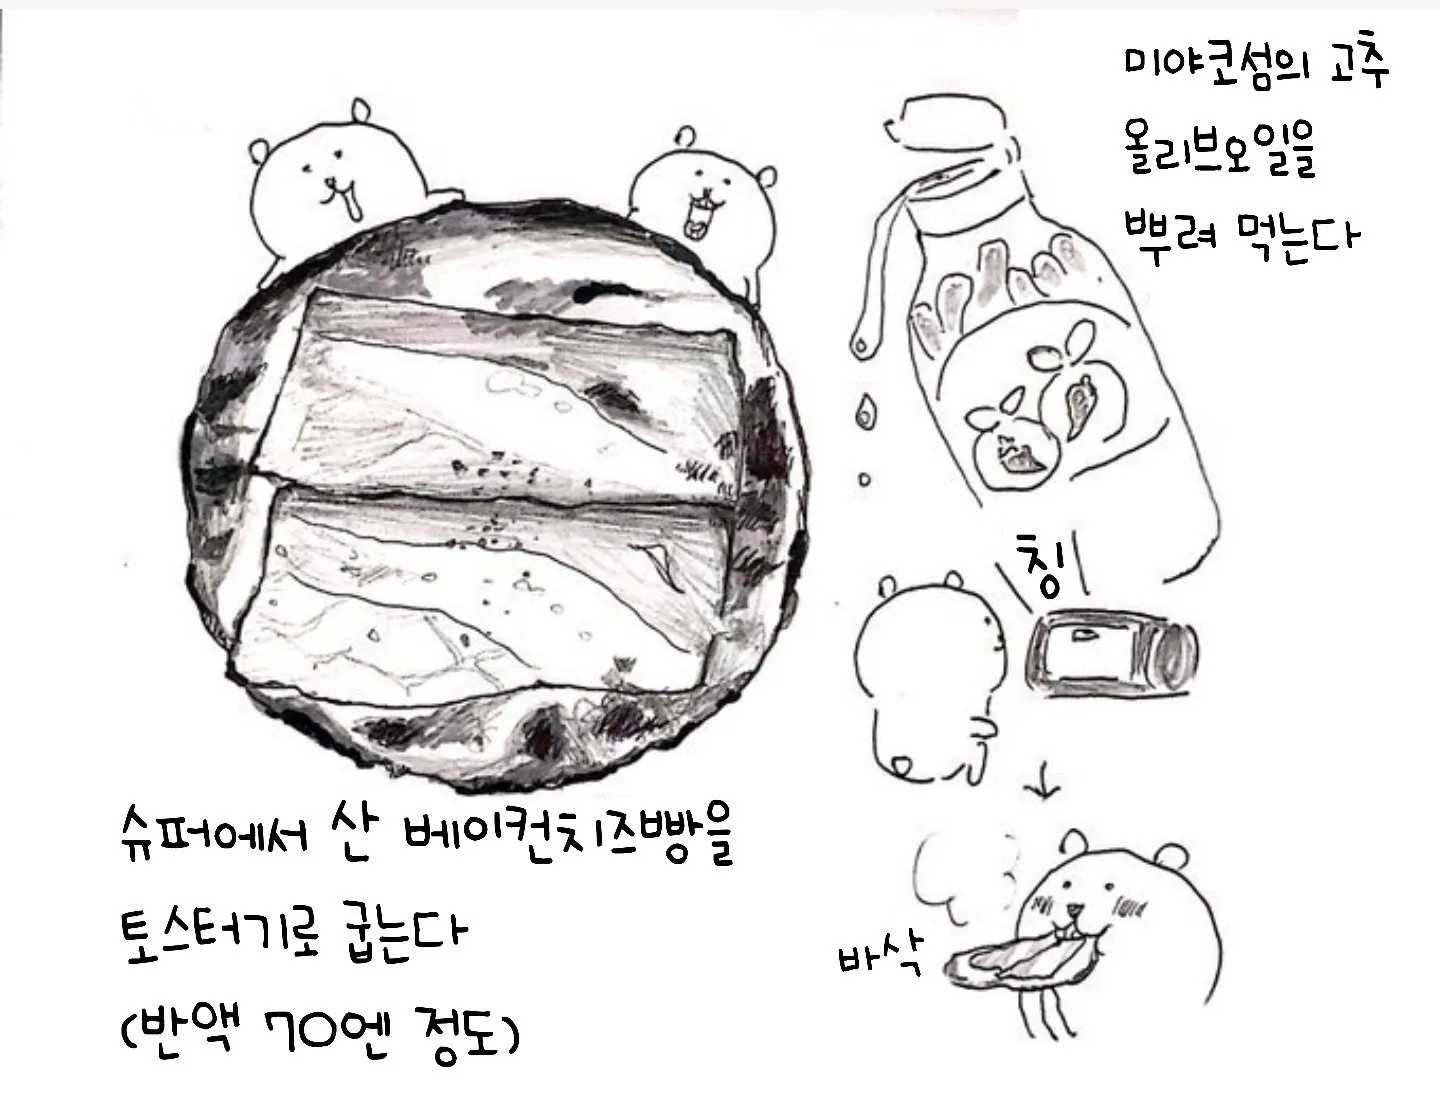 미야코섬의 고추
올리브오일을
뿌려 먹는다
칭
슈퍼에서 산 베이컨치즈빵을
토스터기로 굽는다
(반액 70엔 정도)
바삭